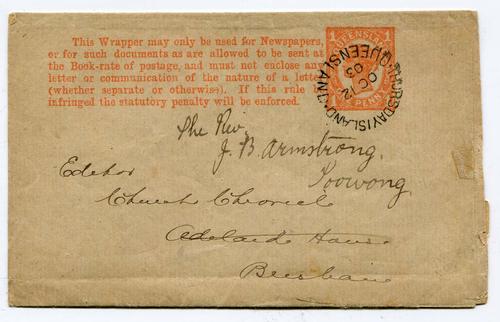 This Wrapper may only be used for Newspapers,
or for such documents as are allowed to be sent at
the Book-rate of postage, and must not enclose any
letter or communication of the nature of a letter
(whether separate or otherwise). If this rule be
infringed the statutory penalty will be enforced.
1 QUEENSLAND 1
ONE PENNY
THURSDAY ISLAND
QUEENSLAND
OC 12
03
The Rev.
J. B. Armstrong,
Toowong,
Editor
Church Chronicle
Adelaide House
Brisbane